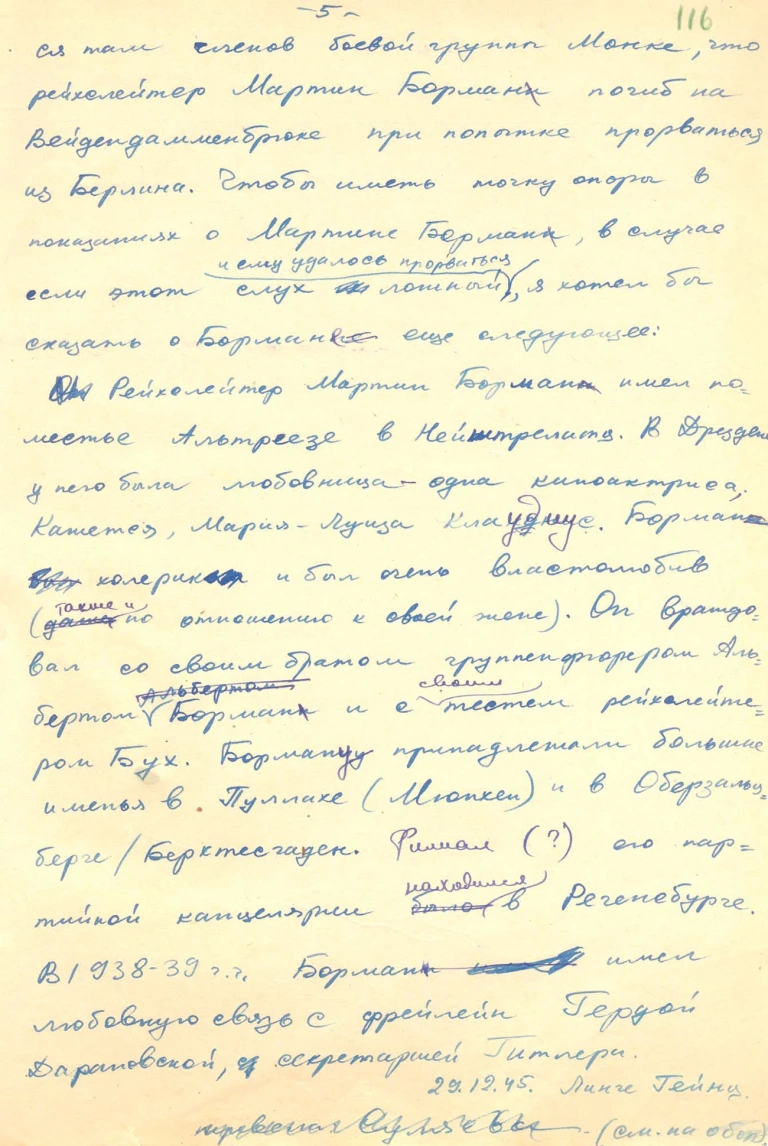 -5-
116
ся там членов боевой группы Монке, что
рейхслейтер Мартин Борман погиб на
Вейдендамменбрюке при попытке прорваться
из Берлина. Чтобы иметь точку опоры в
показаниях о Мартине Борман, в случае
и ему удалось прорваться
если этот слух ложный, я хотел бы
сказать о Борман еще следующее:
Рейхслейтер Мартин Борман имел по=
местье Альтреезе в Нейштрелитц. В Дрездене
у него была любовница - одна киноактриса,
Кажется, Мария-Луиза Клаудиус. Борман
холерик и был очень властолюбив
также и
(даже по отношению к своей жене). Он враждо-
вал со своим братом группенфюрером Аль-
Альбертом своим
бертом Борман и с тестем рейхслейте=
ром Бух. Борману принадлежали большие
именья в Пуллахе (Мюнхен) и в Оберзальц=
берге/Берхтесгаден. Филиал (?) его пар=
находился
тийной канцелярии было в Регенсбурге.
В 1938-39 г.г. Борман имел
любовную связь с фрейлейн Гердой
Дарановской, секретаршей Гитлера.
29.12.45. Линге Гейнц.
(см. на обор)